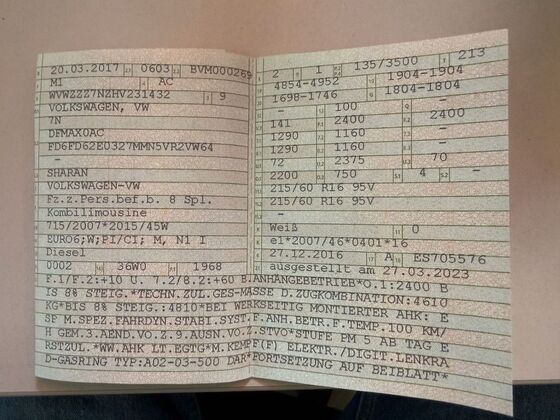 20.03.2017 0603 BVM000269
M1 AC
WVWZZZ7NZHV231432 9
VOLKSWAGEN, VW
7N
DFMAX0AC
FD6FD62E0327MMN5VR2VW64
-
SHARAN
VOLKSWAGEN-VW
Fz.z.Pers.bef.b. 8 Spl.
Kombilimousine
715/2007*2015/45W
EURO6;W;PI/CI; M, N1 I
Diesel
0002 36W0 1968
2 1 135/3500 213
4854-4952 1904-1904
1698-1746 1804-1804
- 100 -
141 2400 2400
1290 1160
1290 1160 -
72 2375 70
2200 750 4 -
215/60 R16 95V
215/60 R16 95V
-
Weiß 0
e1*2007/46*0401*16
27.12.2016 A ES705576
ausgestellt am 27.03.2023
F.1/F.2:+10 U. 7.2/8.2:+60 B.ANHÄNGEBETRIEB*O.1:2400 B
IS 8% STEIG.*TECHN.ZUL.GES-MASSE D.ZUGKOMBINATION:4610
KG*BIS 8% STEIG.:4810*BEI WERKSEITIG MONTIERTER AHK: E
SP M.SPEZ.FAHRDYN.STABI.SYST.F.ANH.BETR.F.TEMP.100 KM/
H GEM.3.AEND.VO.Z.9.AUSN.VO.Z.STVO*STUFE PM 5 AB TAG E
RSTZUL.*WW.AHK LT.EGTG*M.KEMPF(F) ELEKTR./DIGIT.LENKRA
D-GASRING TYP:A02-03-500 DAR*FORTSETZUNG AUF BEIBLATT*